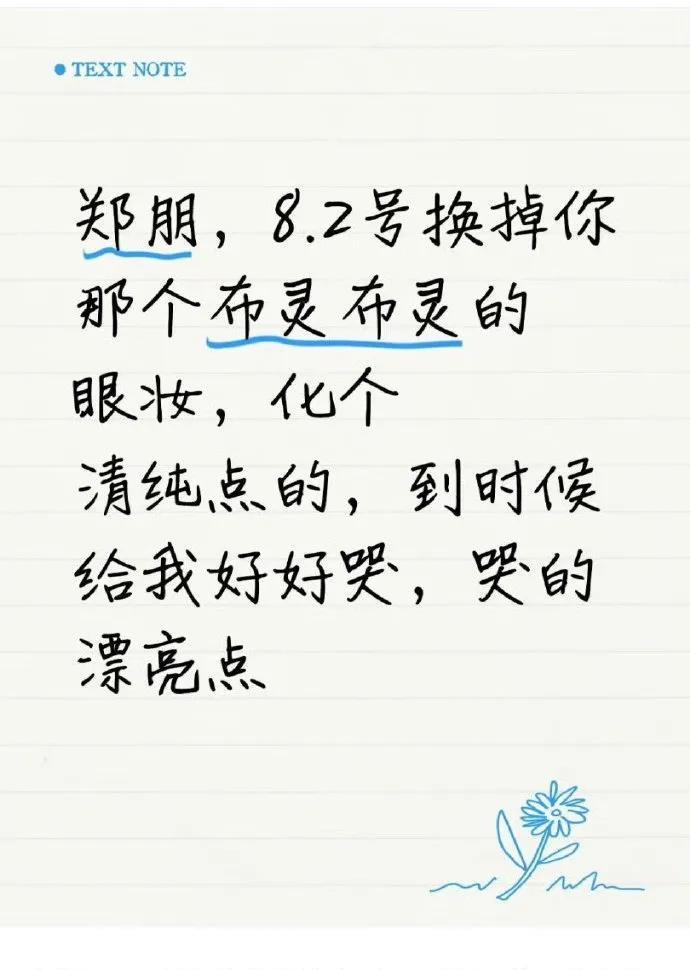 TEXT NOTE
郑朋，8.2号换掉你
那个布灵布灵的
眼妆，化个
清纯点的，到时候
给我好好哭，哭的
漂亮点